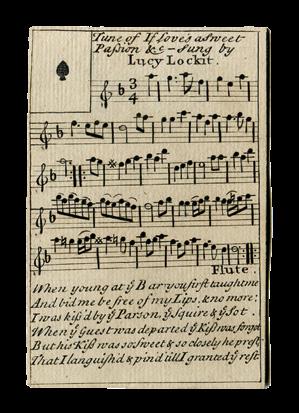 Tune of If Love's a Sweet
Passion &c - Sung by
Lucy Lockit.
3
4
Flute.
When young at ẏ Bar you first taught me
And bid me be free of my Lips, & no more;
I was kiſs'd by ẏ Parson, ẏ Squire & ẏ Sot.
When ẏ Guest was departed ẏ Kiſs was forgot
But his Kiſs was so sweet & so closely he prest
That I languish'd & pind till I granted ẏ rest